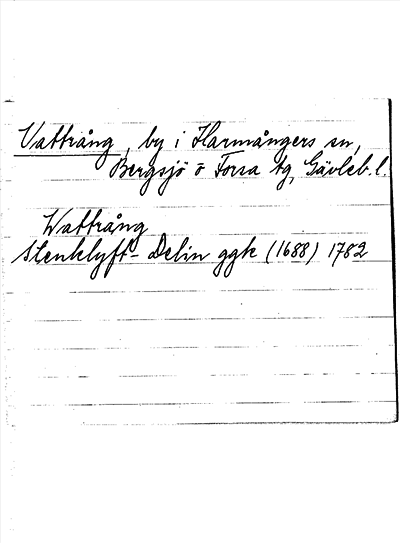 Vattrång, by i Harmångers sn,
Bergsjö o Forsa tg, Gävleb. l.
Wattrång
Stenklyft- Delin ggk (1688) 1782